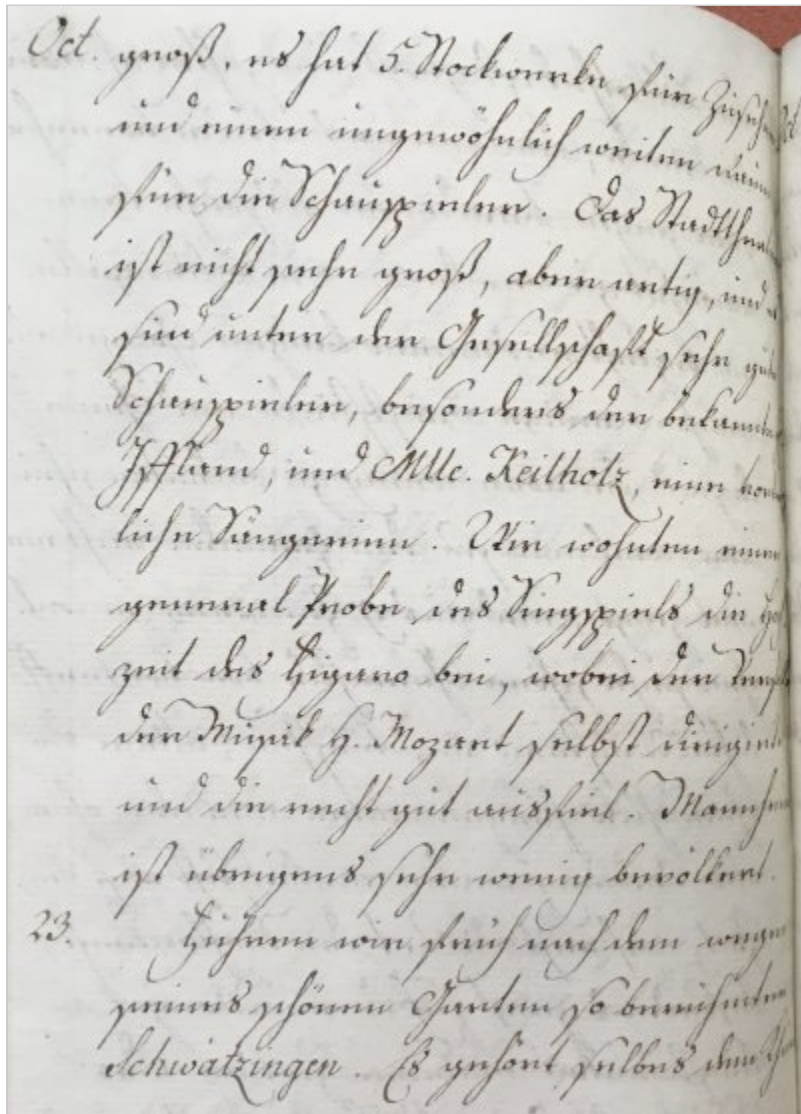 Oct. groß, es hat 5. Stockwerke für
und einen ungewöhnlich weiten
für die Schauspieler. Das
ist nicht sehr groß, aber artig, und
sind unter der Gesellschaft sehr
Schauspieler, besonders der
Iffland, und Mlle. Keilholz, eine
liche Sängerinn. Wir wohnten einer
general Probe des Singspiels die
zeit des Figaro bei, wobei der
der Musik H. Mozart selbst
und die recht gut ausfiel.
ist übrigens sehr wenig bevölkert.
23. Fuhren wir früh nach dem
seines schönen Garten so
Schwätzingen. Es gehört selbes dem